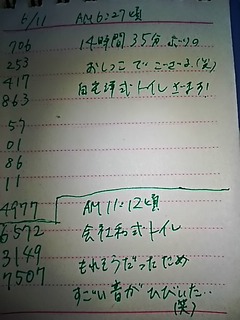 6/11 AM6:27頃
706 14時間35分ぶりの
253 おしっこでございます(笑)
417 自宅洋式トイレざます!
863
57
01
86
11
4977 AM11:12頃
6572 会社和式トイレ
3149 もれそうだったため
7507 すごい音がひびいた‥
(笑)